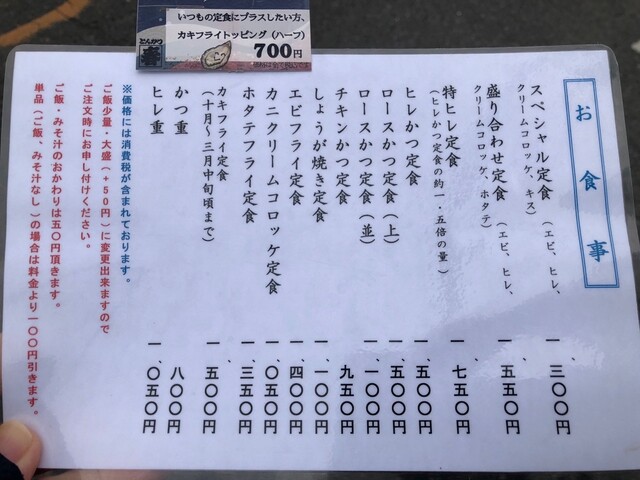 いつもの定食にプラスしたい方、
カキフライトッピング(ハーフ)
700円
とんかつ
お食事
スペシャル定食(エビ、ヒレ、 一、三〇〇円
クリームコロッケ、キス)
盛り合わせ定食(エビ、ヒレ、 一、五五〇円
クリームコロッケ、ホタテ)
特ヒレ定食 一、七五〇円
(ヒレかつ定食の約一・五倍の量)
ヒレかつ定食 一、五〇〇円
ロースかつ定食(上) 一、五〇〇円
ロースかつ定食(並) 一、一〇〇円
チキンかつ定食 九五〇円
しょうが焼き定食 一、一〇〇円
エビフライ定食 一、四〇〇円
カニクリームコロッケ定食 一、〇五〇円
ホタテフライ定食 一、三五〇円
カキフライ定食 一、五〇〇円
(十月〜三月中旬頃まで)
かつ重 八〇〇円
ヒレ重 一、〇五〇円
※価格には消費税が含まれております。
ご飯少量・大盛(+50円)に変更出来ますので
ご注文時にお申し付けください。
ご飯・みそ汁のおかわりは五〇円頂きます。
単品(ご飯、みそ汁なし)の場合は料金より一〇〇円引きます。